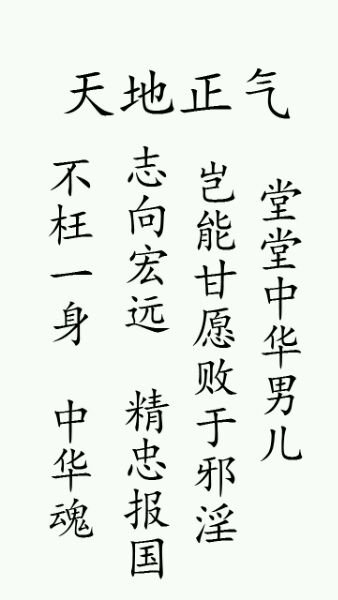 天地正气
堂堂中华男儿
岂能甘愿败于邪淫
志向宏远 精忠报国
不枉一身 中华魂